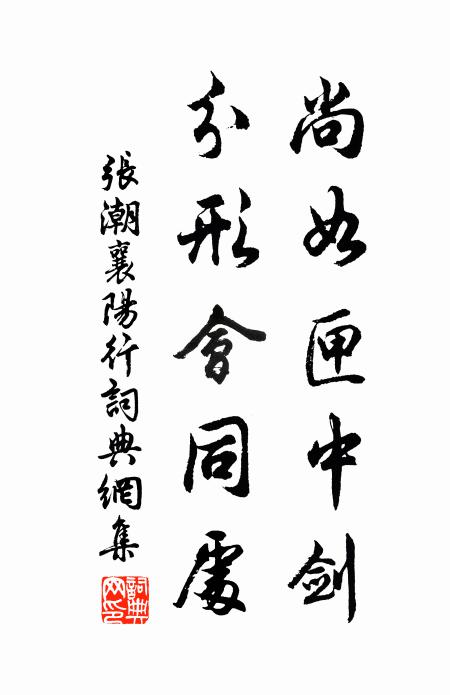 尚如匣中剑
分形會同處
張潮襄陽行詞典網集
詞典
网印